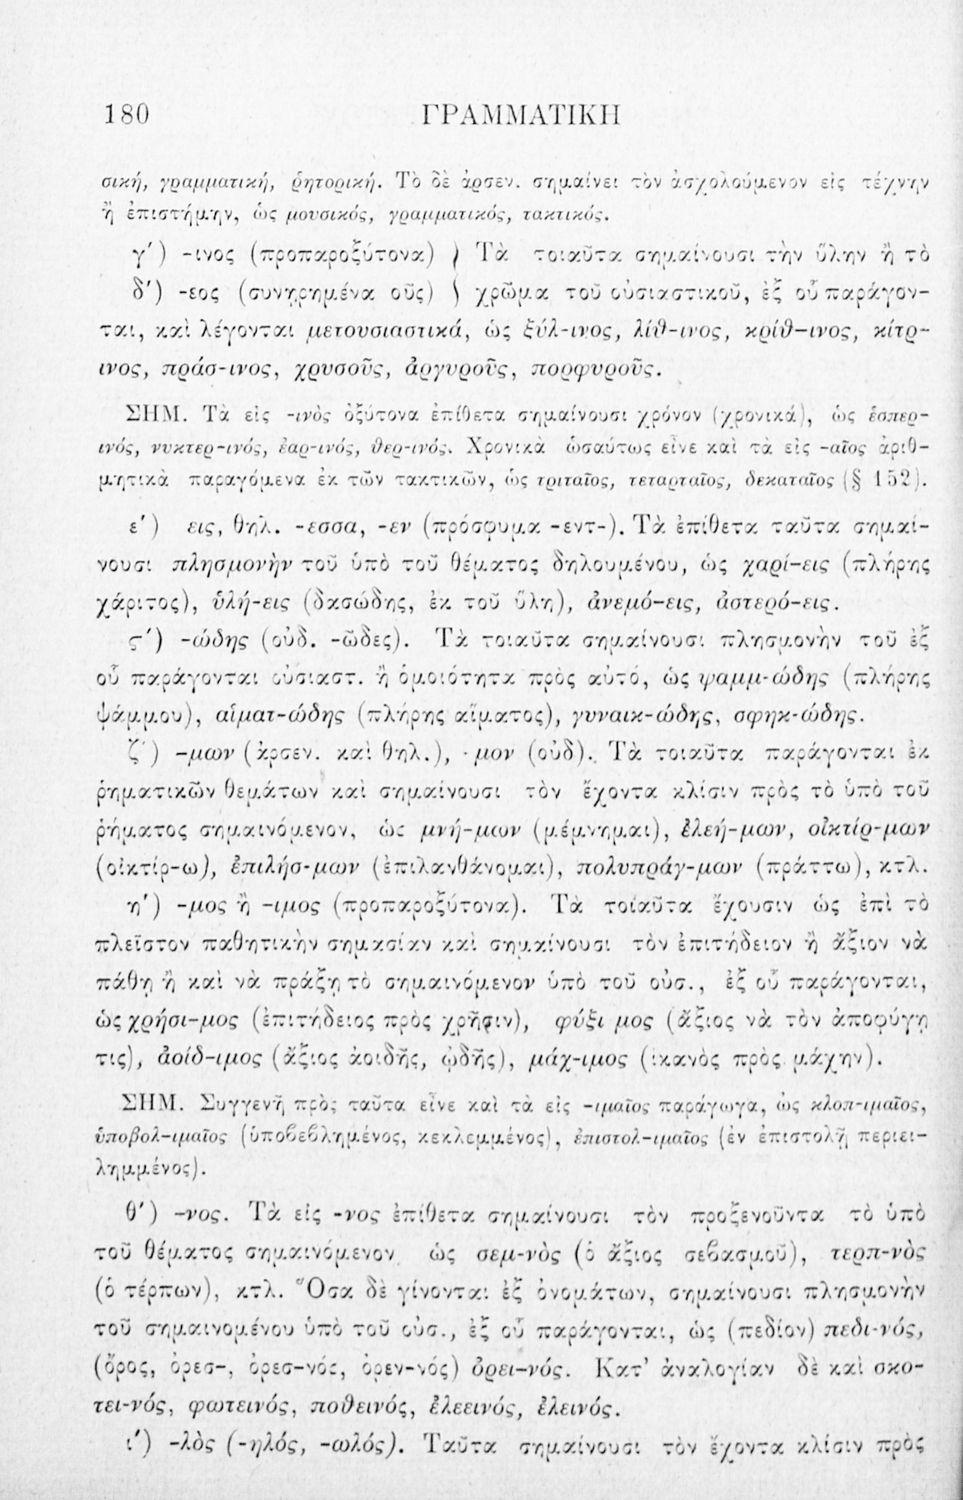 180 ΓΡΑΜΜΑΤΙΚΗ
σική, γραμματική, ῥητορική. Τὸ δὲ ἀρσεν. σημαίνει τὸν ἀσχολούμενον εἰς τέχνην
ἢ ἐπιστήμην, ὡς μουσικός, γραμματικός, τακτικός.
γ′) -ινος (προπαροξύτονα) } Τὰ τοιαῦτα σημαίνουσι τὴν ὕλην ἢ τὸ
δ′) -εος (συνῃρημένα οῦς) } χρῶμα τοῦ οὐσιαστικοῦ, ἐξ οὗ παράγον-
ται, καὶ λέγονται μετουσιαστικά, ὡς ξύλ-ινος, λίθ-ινος, κρίθ-ινος, κίτρ-
ινος, πράσ-ινος, χρυσοῦς, ἀργυροῦς, πορφυροῦς.
ΣΗΜ. Τὰ εἰς -ινὸς ὀξύτονα ἐπίθετα σημαίνουσι χρόνον (χρονικά), ὡς ἑσπερ-
ινός, νυκτερ-ινός, ἐαρ-ινός, θερ-ινός. Χρονικὰ ὡσαύτως εἶνε καὶ τὰ εἰς -αῖος ἀριθ-
μητικὰ παραγόμενα ἐκ τῶν τακτικῶν, ὡς τριταῖος, τεταρταῖος, δεκαταῖος (§ 152).
ε′) εις, θηλ. -εσσα, -εν (πρόσφυμα -εντ-). Τὰ ἐπίθετα ταῦτα σημαί-
νουσι πλησμονὴν τοῦ ὑπὸ τοῦ θέματος δηλουμένου, ὡς χαρί-εις (πλήρης
χάριτος), ὑλή-εις (δασώδης, ἐκ τοῦ ὕλη), ἀνεμό-εις, ἀστερό-εις.
ς′) -ώδης (οὐδ. -ῶδες). Τὰ τοιαῦτα σημαίνουσι πλησμονὴν τοῦ ἐξ
οὗ παράγονται οὐσιαστ. ἢ ὁμοιότητα πρὸς αὐτό, ὡς ψαμμ-ώδης (πλήρης
ψάμμου), αἱματ-ώδης (πλήρης αἵματος), γυναικ-ώδης, σφηκ-ώδης.
ζ′) -μων (ἀρσεν. καὶ θηλ.), -μον (οὐδ). Τὰ τοιαῦτα παράγονται ἐκ
ῥηματικῶν θεμάτων καὶ σημαίνουσι τὸν ἔχοντα κλίσιν πρὸς τὸ ὑπὸ τοῦ
ῥήματος σημαινόμενον, ὡς μνή-μων (μέμνημαι), ἐλεή-μων, οἰκτίρ-μων
(οἰκτίρ-ω), ἐπιλήσ-μων (ἐπιλανθάνομαι), πολυπράγ-μων (πράττω), κτλ.
η′) -μος ἢ -ιμος (προπαροξύτονα). Τὰ τοιαῦτα ἔχουσιν ὡς ἐπὶ τὸ
πλεῖστον παθητικὴν σημασίαν καὶ σημαίνουσι τὸν ἐπιτήδειον ἢ ἄξιον νὰ
πάθῃ ἢ καὶ νὰ πράξῃ τὸ σημαινόμενον ὑπὸ τοῦ οὐσ., ἐξ οὗ παράγονται,
ὡς χρήσι-μος (ἐπιτήδειος πρὸς χρῆσιν), φύξι μος (ἄξιος νὰ τὸν ἀποφύγῃ
τις), ἀοίδ-ιμος (ἄξιος ἀοιδῆς, ᾠδῆς), μάχ-ιμος (ἱκανὸς πρὸς μάχην).
ΣΗΜ. Συγγενῆ πρὸς ταῦτα εἶνε καὶ τὰ εἰς -ιμαῖος παράγωγα, ὡς κλοπ-ιμαῖος,
ὑποβολ-ιμαῖος (ὑποβεβλημένος, κεκλεμμένος), ἐπιστολ-ιμαῖος (ἐν ἐπιστολῇ περιει-
λημμένος).
θ′) -νος. Τὰ εἰς -νος ἐπίθετα σημαίνουσι τὸν προξενοῦντα τὸ ὑπὸ
τοῦ θέματος σημαινόμενον ὡς σεμ-νὸς (ὁ ἄξιος σεβασμοῦ), τερπ-νὸς
(ὁ τέρπων), κτλ. Ὅσα δὲ γίνονται ἐξ ὀνομάτων, σημαίνουσι πλησμονὴν
τοῦ σημαινομένου ὑπὸ τοῦ οὐσ., ἐξ οὗ παράγονται, ὡς (πεδίον) πεδι-νός,
(ὄρος, ὀρεσ-, ὀρεσ-νός, ὀρεν-νός) ὀρει-νός. Κατ’ ἀναλογίαν δὲ καὶ σκο-
τει-νός, φωτεινός, ποθεινός, ἐλεεινός, ἐλεινός.
ι′) -λὸς (-ηλός, -ωλός). Ταῦτα σημαίνουσι τὸν ἔχοντα κλίσιν πρὸς